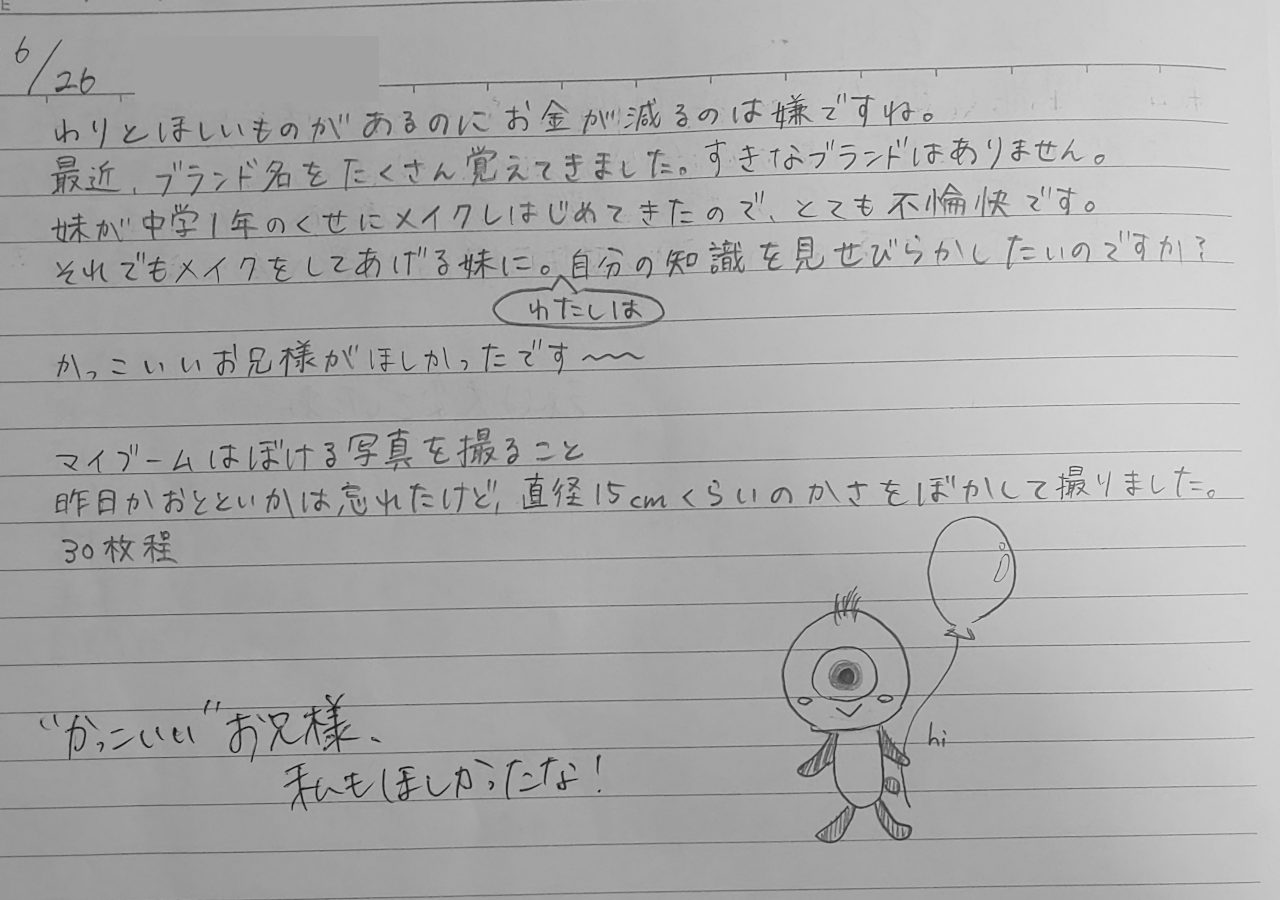 6/26
わりとほしいものがあるのにお金が減るのは嫌ですね。
最近、ブランド名をたくさん覚えてきました。すきなブランドはありません。
妹が中学1年のくせにメイクしはじめてきたので、とても不愉快です。
それでもメイクをしてあげる妹に。自分の知識を見せびらかしたいのですか?
わたしは
かっこいいお兄様がほしかったです〜〜
マイブームはぼける写真を撮ること
昨日かおとといかは忘れたけど、直径15cmくらいのかさをぼかして撮りました。
30枚程
"かっこいい"お兄様、
私もほしかったな!
hi